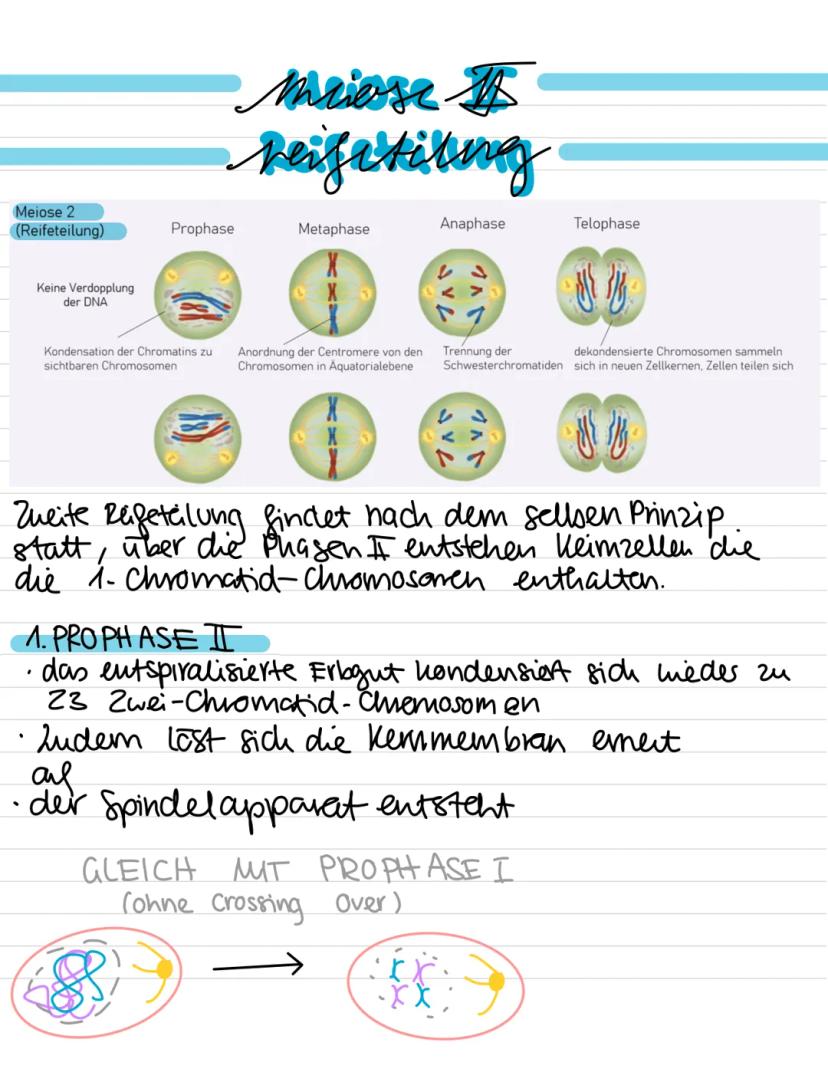 Meiose II
Reifeteilung
Meiose 2
(Reifeteilung)
Prophase
Metaphase
Anaphase
Telophase
Keine Verdopplung
der DNA
Kondensation der Chromatins zu
sichtbaren Chromosomen
Anordnung der Centromere von den
Chromosomen in Äquatorialebene
Trennung der
Schwesterchromatiden
dekondensierte Chromosomen sammeln
sich in neuen Zellkernen, Zellen teilen sich
Zweite Reifeteilung findet nach dem selben Prinzip
statt, über die Phasen II entstehen Keimzellen die
die 1-Chromatid-Chromosomen enthalten.
1. PROPHASE II
· das entspiralisierte Erbgut kondensiert sich wieder zu
23 Zwei-Chromatid-Chromosomen
· Zudem löst sich die Kernmembran erneut
auf
· der Spindelapparat entsteht
GLEICH MIT PROPHASE I
(ohne Crossing Over)